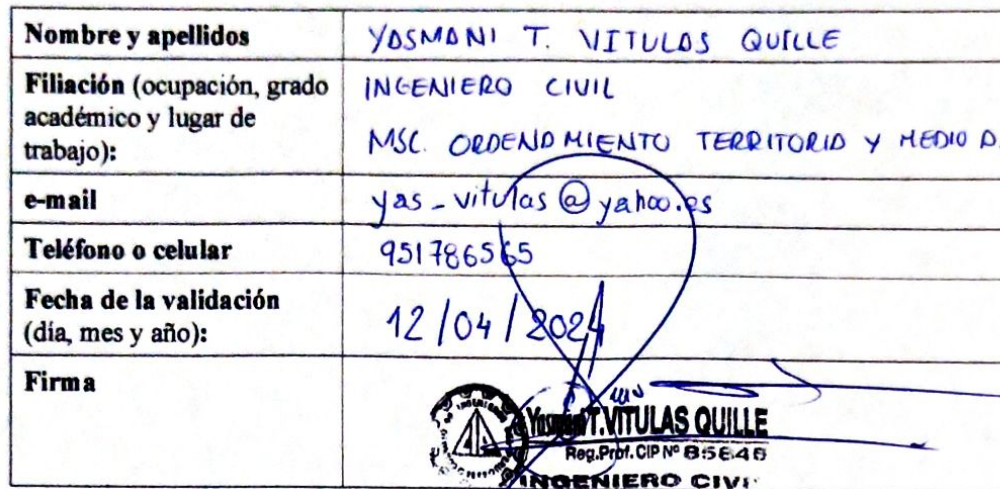 Nombre y apellidos
YASMANI T. VITULAS QUILLE
Filiación (ocupación, grado
académico y lugar de
trabajo):
INGENIERO CIVIL
MSC. ORDENAMIENTO TERRITORIO Y MEDIO A.
e-mail
yas_vitulas@yahoo.es
Teléfono o celular
951786565
Fecha de la validación
(día, mes y año):
12/04/2024
Firma
Yasmani T. VITULAS QUILLE
Reg.Prof. CIP Nº 85646
INGENIERO CIVI